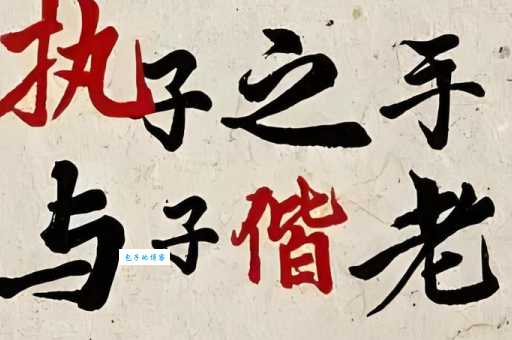 执子之手
与子偕老
包子的博客